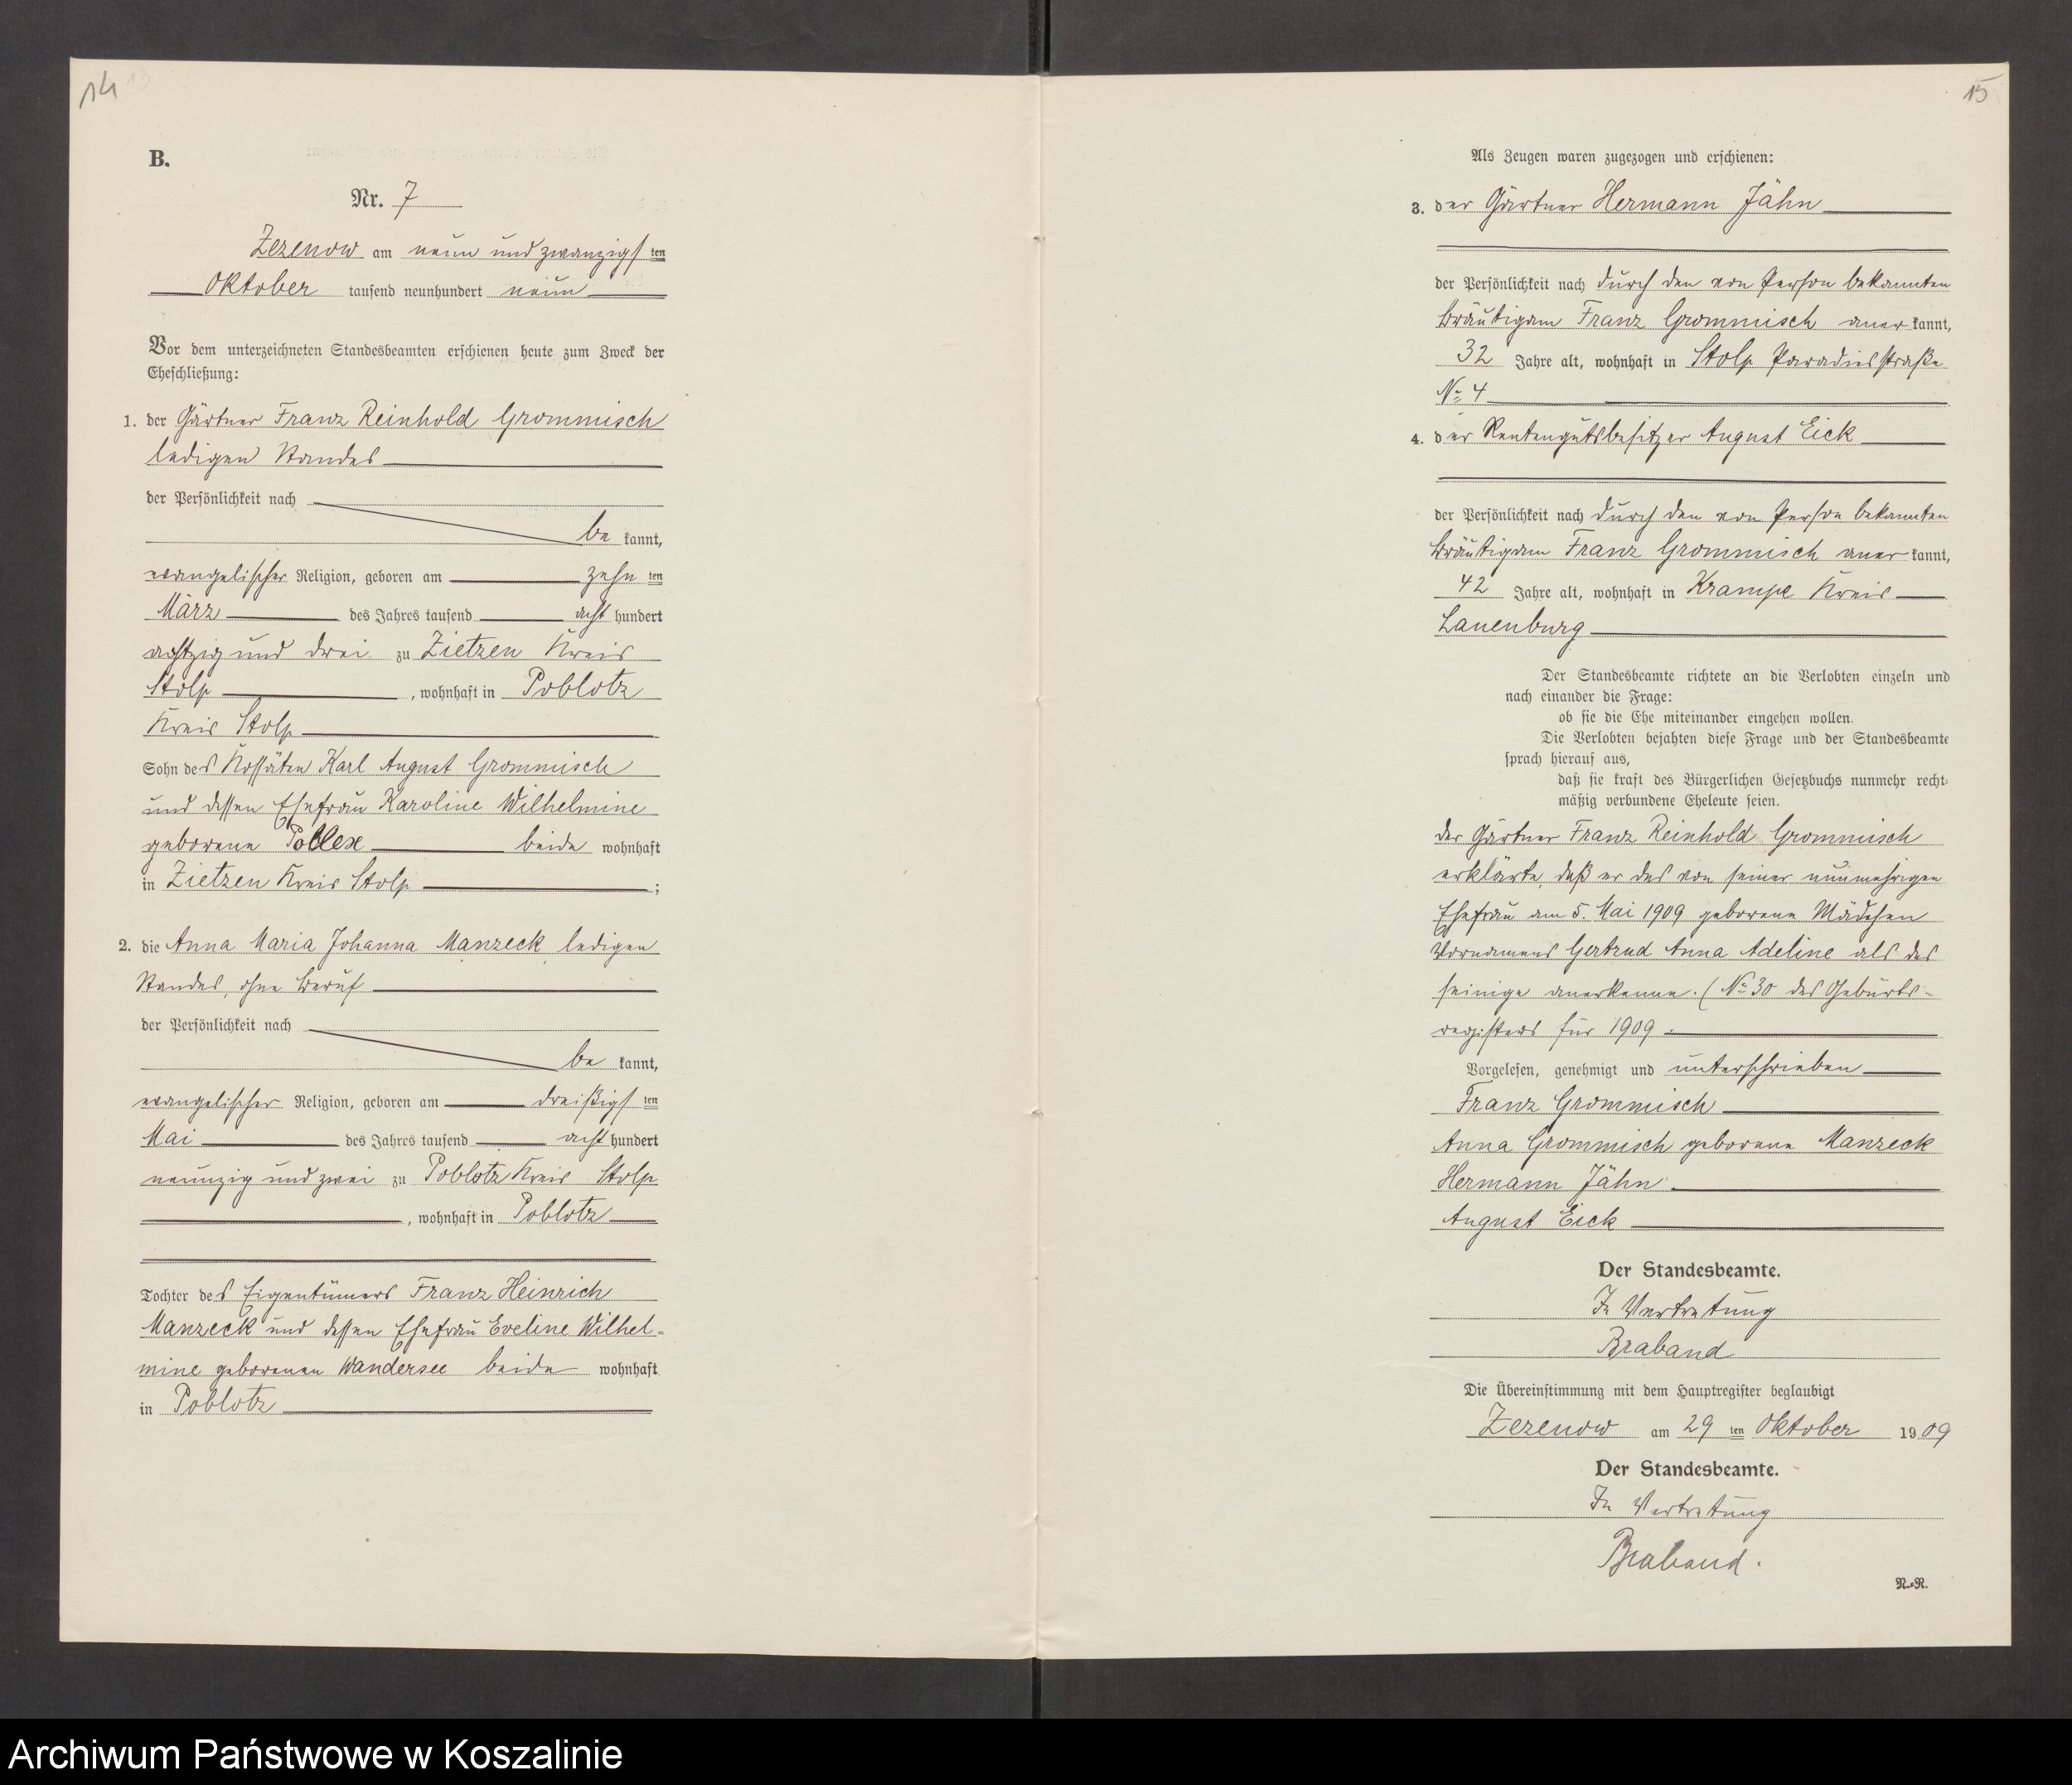 14 13
B.
Nr. 7
Zezenow am neun und zwanzigsten
Oktober tausend neunhundert neun
Vor dem unterzeichneten Standesbeamten erschienen heute zum Zweck der
Eheschließung:
1. der Gärtner Franz Reinhold Grommisch
ledigen Standes
der Persönlichkeit nach
be kannt,
evangelischer Religion, geboren am zehn ten
März des Jahres tausend acht hundert
achtzig und drei zu Zietzen Kreis
Stolp , wohnhaft in Poblotz
Kreis Stolp
Sohn des Kossäten Karl August Grommisch
und dessen Ehefrau Karoline Wilhelmine
geborene Pollex beide wohnhaft
in Zietzen Kreis Stolp ;
2. die Anna Maria Johanna Manzeck ledigen
Standes, ohne Beruf
der Persönlichkeit nach
be kannt,
evangelischer Religion, geboren am dreißigsten
Mai des Jahres tausend acht hundert
neunzig und zwei zu Poblotz Kreis Stolp
, wohnhaft in Poblotz
Tochter des Eigentümers Franz Heinrich
Manzeck und dessen Ehefrau Eveline Wilhel-
mine geborenen Wandersee beide wohnhaft
in Poblotz
15
Als Zeugen waren zugezogen und erschienen:
3. der Gärtner Hermann Jähn
der Persönlichkeit nach durch den von Person bekannten
Bräutigam Franz Grommisch aner kannt,
32 Jahre alt, wohnhaft in Stolp Paradiesstraße
No 4
4. der Rentengutsbesitzer August Eick
der Persönlichkeit nach durch den von Person bekannten
Bräutigam Franz Grommisch aner kannt,
42 Jahre alt, wohnhaft in Krampe Kreis
Lauenburg
Der Standesbeamte richtete an die Verlobten einzeln und
nach einander die Frage:
ob sie die Ehe miteinander eingehen wollen.
Die Verlobten bejahten diese Frage und der Standesbeamte
sprach hierauf aus,
daß sie kraft des Bürgerlichen Gesetzbuchs nunmehr recht-
mäßig verbundene Eheleute seien.
Der Gärtner Franz Reinhold Grommisch
erklärte, daß er das von seiner nunmehrigen
Ehefrau am 5. Mai 1909 geborene Mädchen
Vornamens Gertrud Anna Adeline als das
seinige anerkenne. (No 30 des Geburts-
registers für 1909.
Vorgelesen, genehmigt und unterschrieben
Franz Grommisch
Anna Grommisch geborene Manzeck
Hermann Jähn
August Eick
Der Standesbeamte.
In Vertretung
Braband
Die Übereinstimmung mit dem Hauptregister beglaubigt
Zezenow am 29 ten Oktober 1909
Der Standesbeamte.
In Vertretung
Braband.
N.-R.
Archiwum Państwowe w Koszalinie